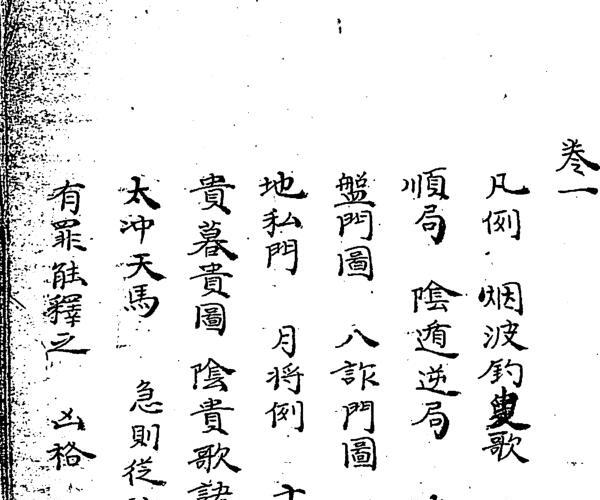 卷一
凡例 烟波釣叟歌
順局 陰遁逆局
盤門圖 八詐門圖
地私門 月将例 十
貴暮貴圖 陰貴歌訣
太冲天馬 急則從
有罪能釋之 凶格